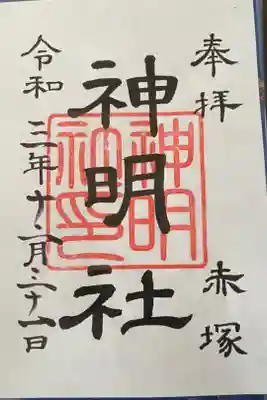 奉拝 赤塚
神明社
神明社印
令和三年十二月二十一日